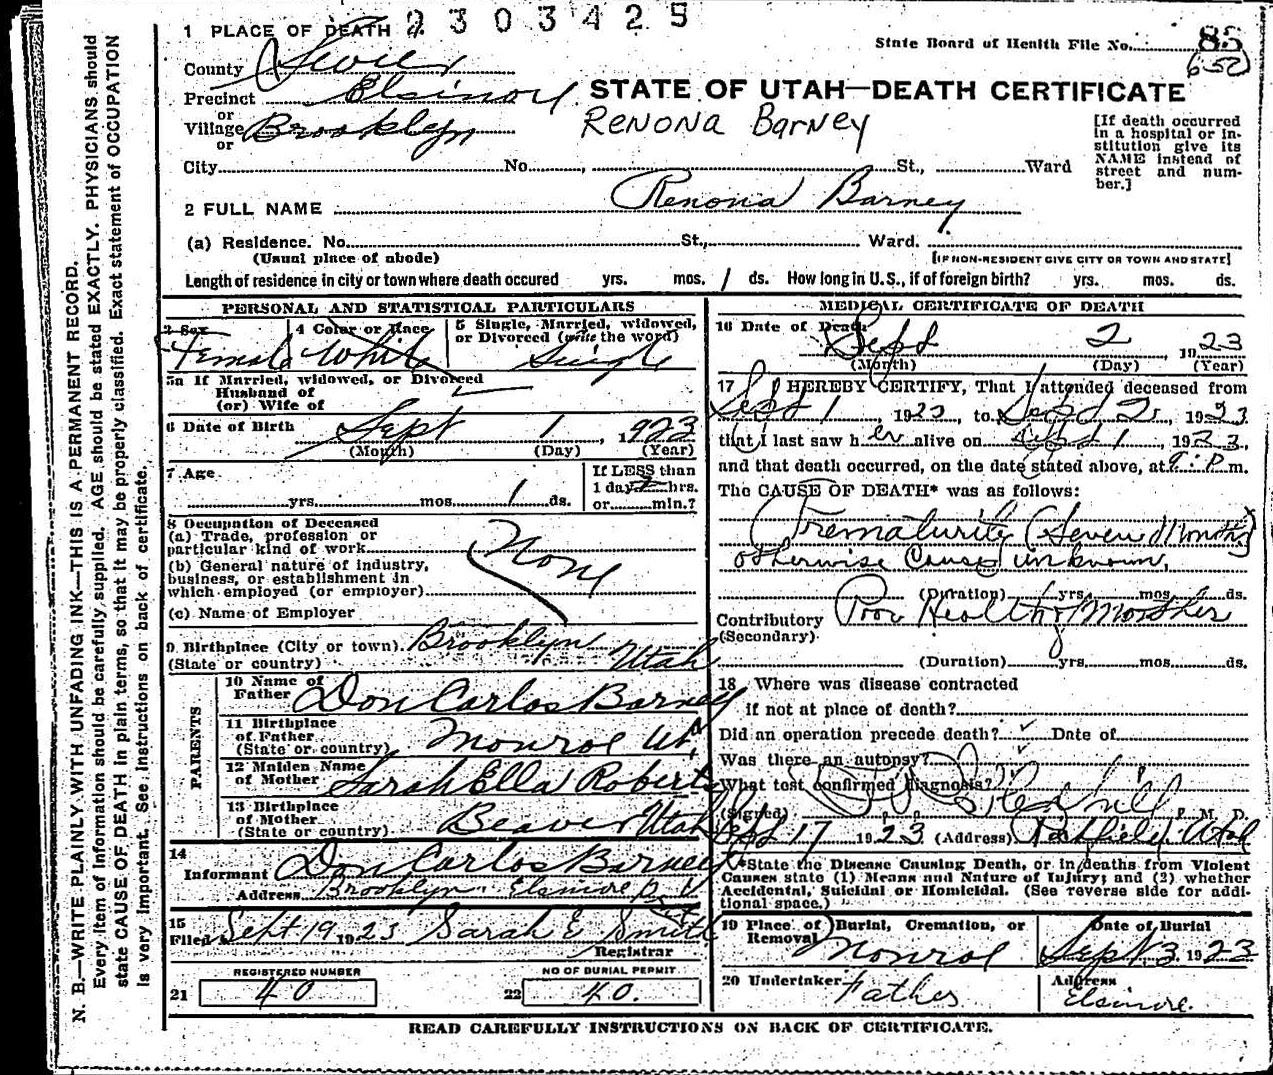 2303425
1 PLACE OF DEATH
State Board of Health File No. 85
County Sevier
Precinct Elsinore
STATE OF UTAH—DEATH CERTIFICATE
or
Village Brooklyn
or
RENONA Barney
[If death occurred
in a hospital or in-
stitution give its
NAME instead of
street and num-
ber.]
City No. , St., Ward
2 FULL NAME Renona Barney
(a) Residence. No. St., Ward.
(Usual place of abode) [IF NON-RESIDENT GIVE CITY OR TOWN AND STATE]
Length of residence in city or town where death occured yrs. mos. 1 ds. How long in U.S., if of foreign birth? yrs. mos. ds.
PERSONAL AND STATISTICAL PARTICULARS
3 Sex 4 Color or Race 5 Single, Married, widowed,
or Divorced (write the word)
Female White Single
5a If Married, widowed, or Divorced
Husband of
(or) Wife of
6 Date of Birth Sept 1, 1923
(Month) (Day) (Year)
7 Age
yrs. mos. 1 ds.
If LESS than
1 day hrs.
or min.?
8 Occupation of Deceased
(a) Trade, profession or
particular kind of work None
(b) General nature of industry,
business, or establishment in
which employed (or employer)
(c) Name of Employer
9 Birthplace (City or town) Brooklyn
(State or country) Utah
PARENTS
10 Name of
Father Don Carlos Barney
11 Birthplace
of Father
(State or country) Monroe Ut.
12 Maiden Name
of Mother Sarah Ella Roberts
13 Birthplace
of Mother
(State or country) Beaver Utah
14
Informant Don Carlos Barney
Address Brooklyn Elsinore
15
Filed Sept 19 1923 Sarah E Smith
Registrar
REGISTERED NUMBER NO OF BURIAL PERMIT
21 40 22 40.
MEDICAL CERTIFICATE OF DEATH
16 Date of Death Sept 2, 1923
(Month) (Day) (Year)
17 I HEREBY CERTIFY, That I attended deceased from
Sept 1, 1923, to Sept 2, 1923
that I last saw her alive on Sept 1, 1923,
and that death occurred, on the date stated above, at 9 P m.
The CAUSE OF DEATH* was as follows:
Prematurity (Seven Months)
otherwise Cause unknown.
(Duration) yrs. mos. ds.
Contributory Poor Health of Mother
(Secondary)
(Duration) yrs. mos. ds.
18 Where was disease contracted
if not at place of death?
Did an operation precede death? Date of
Was there an autopsy?
What test confirmed diagnosis?
(Signed) M. D.
Sept 17 1923 (Address) Richfield, Utah
*State the Disease Causing Death, or in deaths from Violent
Causes state (1) Means and Nature of Injury; and (2) whether
Accidental, Suicidal or Homicidal. (See reverse side for addi-
tional space.)
19 Place of Burial, Cremation, or
Removal Monroe
Date of Burial
Sept. 3 1923
20 Undertaker Father
Address
Elsinore.
READ CAREFULLY INSTRUCTIONS ON BACK OF CERTIFICATE.
N. B.—WRITE PLAINLY WITH UNFADING INK—THIS IS A PERMANENT RECORD.
Every item of information should be carefully supplied. AGE should be stated EXACTLY. PHYSICIANS should
state CAUSE OF DEATH in plain terms, so that it may be properly classified. Exact statement of OCCUPATION
is very important. See instructions on back of certificate.